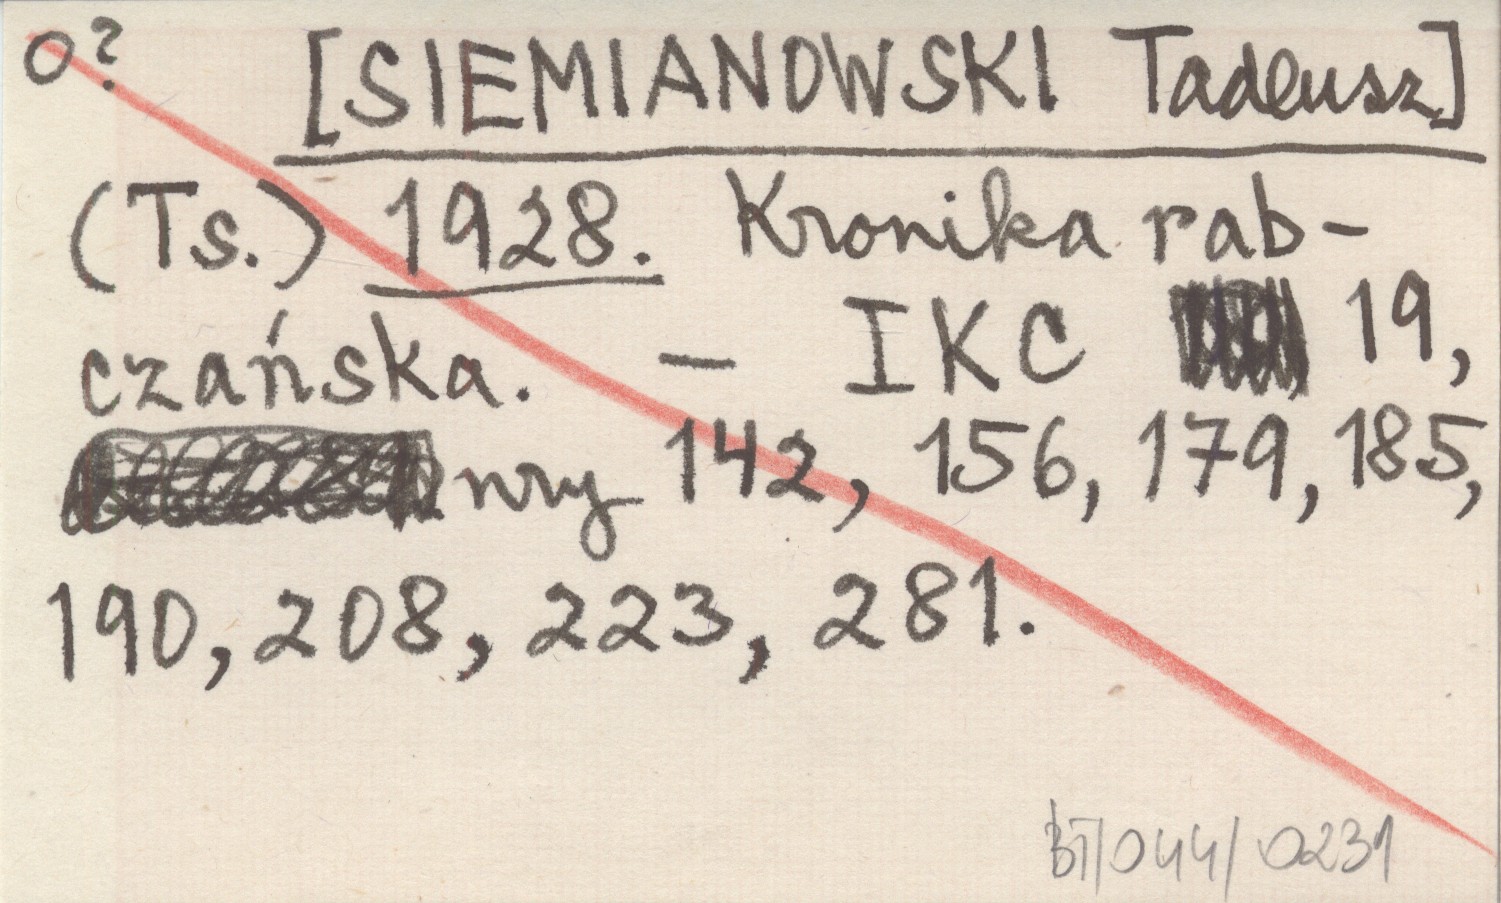 O? [SIEMIANOWSKI Tadeusz]
(Ts.) 1928. Kronika rab-
czańska. - IKC 19,
nry 142, 156, 179, 185,
190, 208, 223, 281.
BT/044/0231